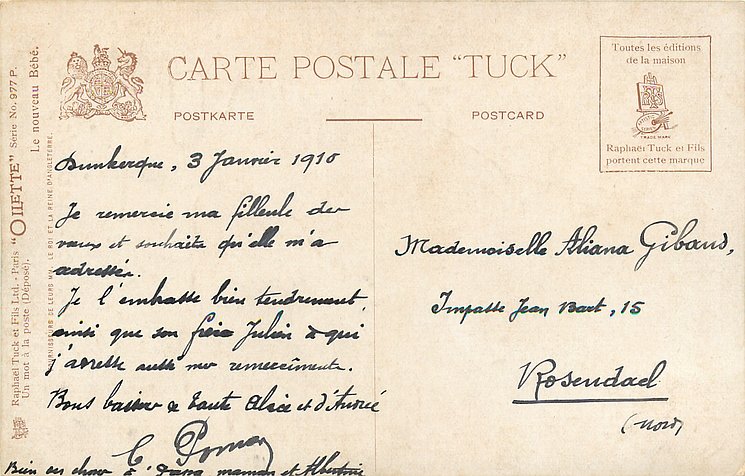 CARTE POSTALE "TUCK"
POSTKARTE
POSTCARD
Toutes les éditions
de la maison
TRADE MARK
Raphaël Tuck et Fils
portent cette marque
Raphael Tuck et Fils Ltd. - Paris "OILETTE" Série No. 977 P.
Un mot à la poste (Déposé). Le nouveau Bébé.
FOURNISSEURS DE LEURS MM. LE ROI ET LA REINE D'ANGLETERRE.
Dunkerque, 3 Janvier 1910
Je remercie ma filleule des
vœux et souhaits qu'elle m'a
adressés.
Je l'embrasse bien tendrement,
ainsi que son frère Julien à qui
j'adresse aussi mes remercîments.
Bons baisers de tante Alice et d'André
Bien des choses à maman et Albertine
Mademoiselle Aliana Gibaud,
Impasse Jean Bart, 15
Rosendael
(Nord)